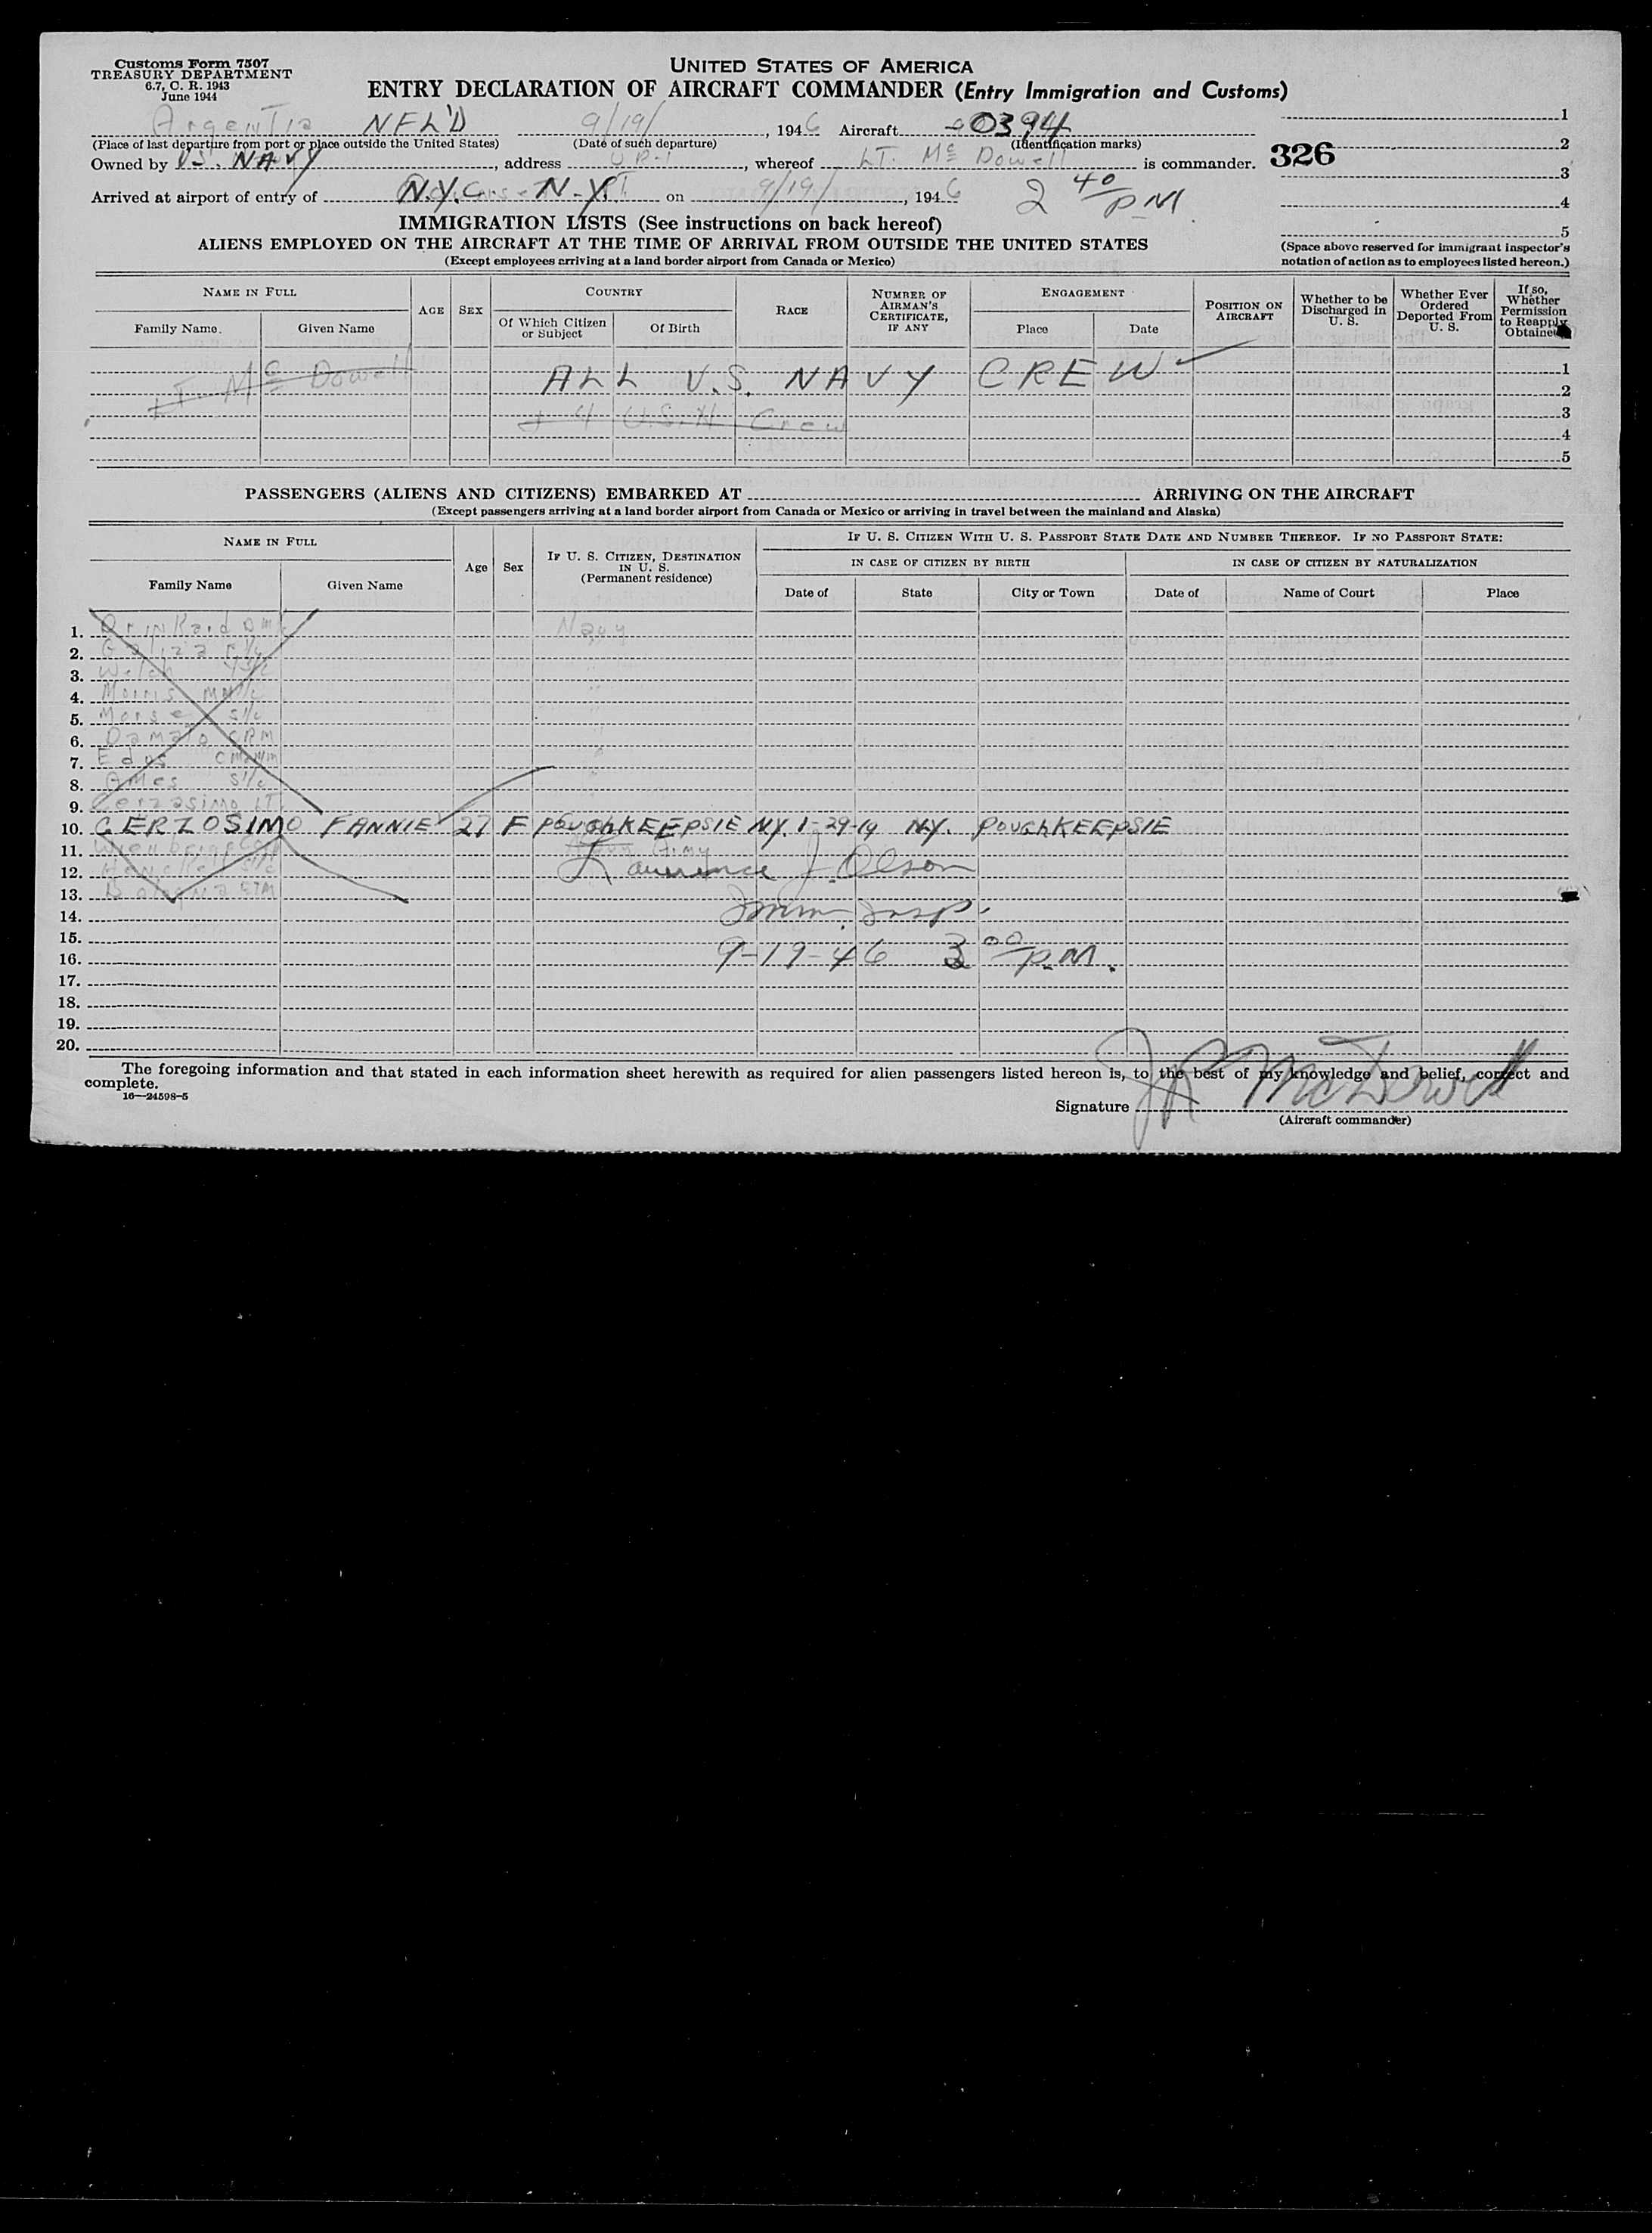 Customs Form 7507
TREASURY DEPARTMENT
6.7, C. R. 1943
June 1944
UNITED STATES OF AMERICA
ENTRY DECLARATION OF AIRCRAFT COMMANDER (Entry Immigration and Customs)
Argentia NFL'D 9/19/, 1946 Aircraft 0394
(Place of last departure from port or place outside the United States) (Date of such departure) (Identification marks)
Owned by U.S. NAVY, address, whereof LT. Mc Dowell is commander.
326
Arrived at airport of entry of N.Y.C. N.Y. on 9/19/, 1946 2 40 PM
1
2
3
4
5
(Space above reserved for immigrant inspector's notation of action as to employees listed hereon.)
IMMIGRATION LISTS (See instructions on back hereof)
ALIENS EMPLOYED ON THE AIRCRAFT AT THE TIME OF ARRIVAL FROM OUTSIDE THE UNITED STATES
(Except employees arriving at a land border airport from Canada or Mexico)
NAME IN FULL AGE SEX COUNTRY RACE NUMBER OF AIRMAN'S CERTIFICATE, IF ANY ENGAGEMENT POSITION ON AIRCRAFT Whether to be Discharged in U. S. Whether Ever Ordered Deported From U. S. If so, Whether Permission to Reapply Obtained
Family Name Given Name Of Which Citizen or Subject Of Birth Place Date
LT Mc Dowell ALL U.S. NAVY CREW 1
2
+ 4 U.S.N. Crew 3
4
5
PASSENGERS (ALIENS AND CITIZENS) EMBARKED AT ARRIVING ON THE AIRCRAFT
(Except passengers arriving at a land border airport from Canada or Mexico or arriving in travel between the mainland and Alaska)
NAME IN FULL Age Sex IF U. S. CITIZEN, DESTINATION IN U. S. (Permanent residence) IF U. S. CITIZEN WITH U. S. PASSPORT STATE DATE AND NUMBER THEREOF. IF NO PASSPORT STATE:
IN CASE OF CITIZEN BY BIRTH IN CASE OF CITIZEN BY NATURALIZATION
Family Name Given Name Date of State City or Town Date of Name of Court Place
1. Navy
2.
3. Welch
4. Morris
5. Morse S1/c
6. Damato CRM
7.
8. Ames S1/c
9. LT.
10. CERZOSIMO FANNIE 27 F POUGHKEEPSIE N.Y. 1-29-19 N.Y. POUGHKEEPSIE
11.
12. Lawrence J. Olson
13.
14. Imm. Insp.
15.
16. 9-19-46 3 00 P.M.
17.
18.
19.
20.
The foregoing information and that stated in each information sheet herewith as required for alien passengers listed hereon is, to the best of my knowledge and belief, correct and
complete.
16—24598-5
Signature J R McDowell
(Aircraft commander)